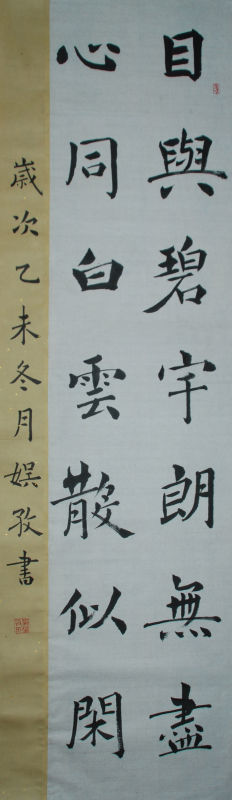 目與碧宇朗無盡
心同白雲散似閑
歲次乙未冬月娱孜書